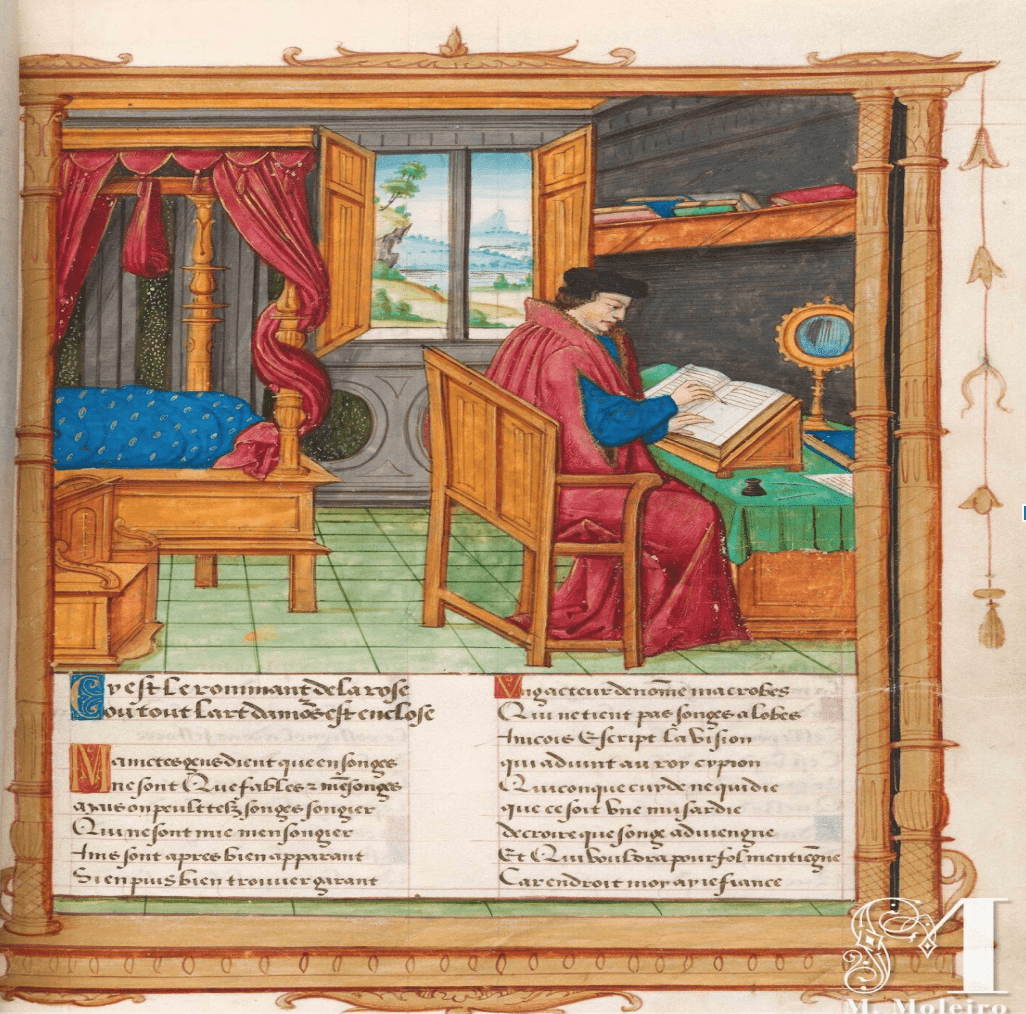 Cy est le rommant de la rose
Ou tout lart damo͞s est enclose
Mainctes gens dient que en songes
ne sont Que fables & me͞songes
Mais on peult telz songes songier
Qui ne sont mie mensongier
Ains sont apres bien apparant
Si en puis bien trouuer garant
Vng acteur de nom͞e macrobes
Qui ne tient pas songes a lobes
Aincois Escript la vision
qui aduint au roy cypion
Quiconque cuyde ne qui die
que ce soit vne musardie
de croire que songe aduiengne
Et Qui vouldra pour fol men tie͞gne
Car endroit moy ay ie fiance
M
M. Moleiro